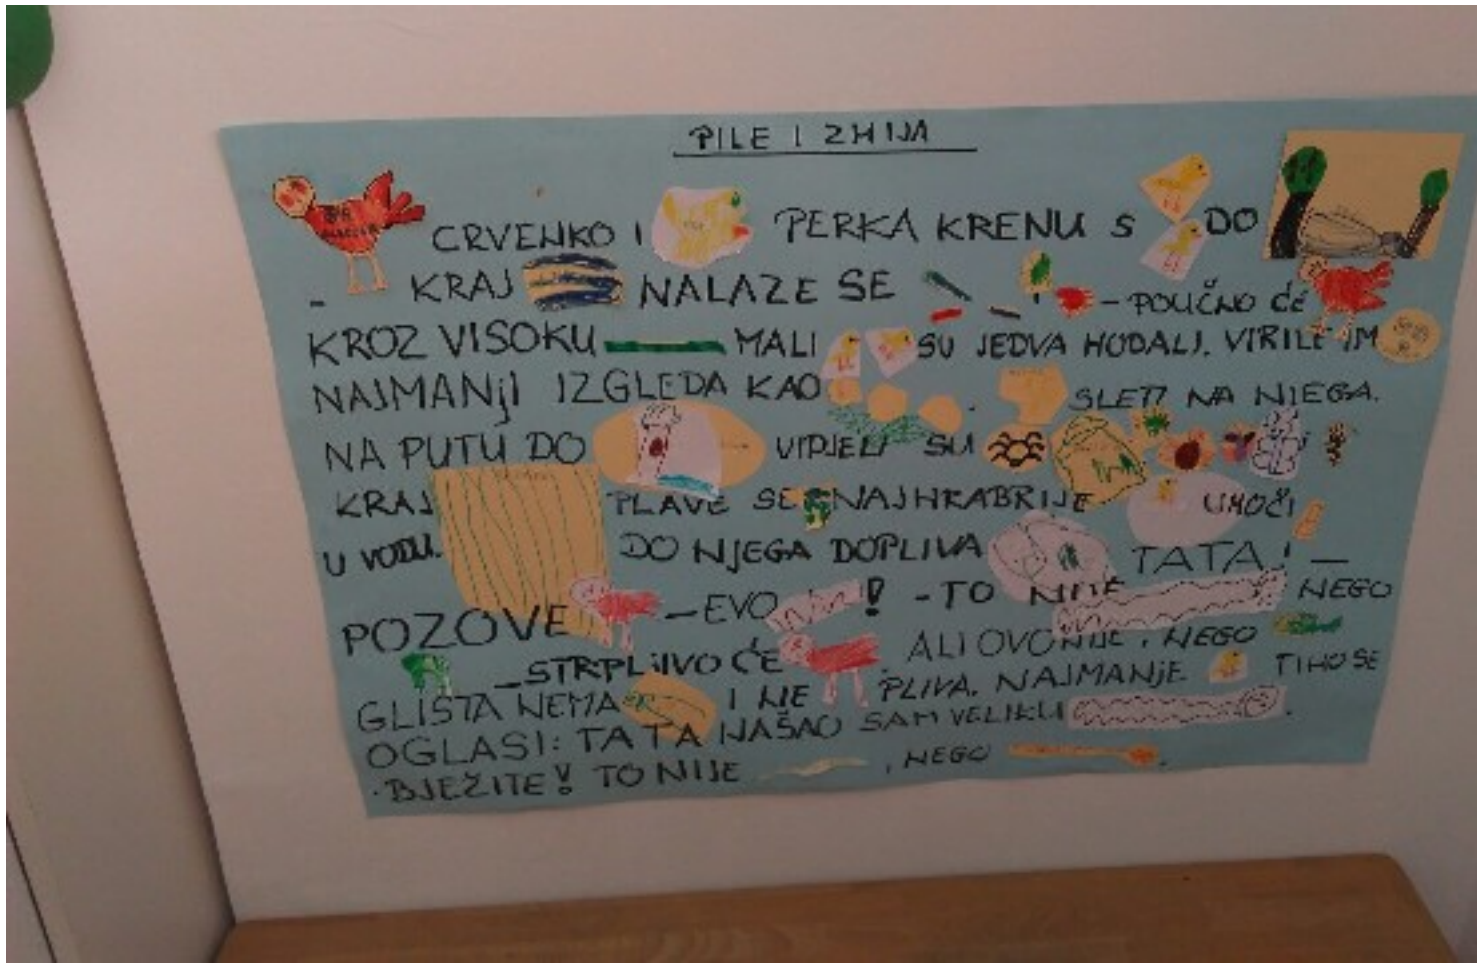 PILE I ZMIJA
CRVENKO I PERKA KRENU S DO
- KRAJ NALAZE SE - POUČNO ĆE
KROZ VISOKU MALI SU JEDVA HODALI. VIRILE IM
NAJMANJI IZGLEDA KAO . SLETI NA NJEGA.
NA PUTU DO VIDJELI SU
KRAJ PLAVE SE NAJHRABRIJE UMOČI
U VODU. DO NJEGA DOPLIVA TATA! -
POZOVE - EVO ! - TO NIJE NEGO
- STRPLJIVO ĆE . ALI OVO NIJE , NEGO
GLISTA NEMA I NE PLIVA. NAJMANJE TIHO SE
OGLASI: TATA NAŠAO SAM VELIKU .
. BJEŽITE! TO NIJE , NEGO .